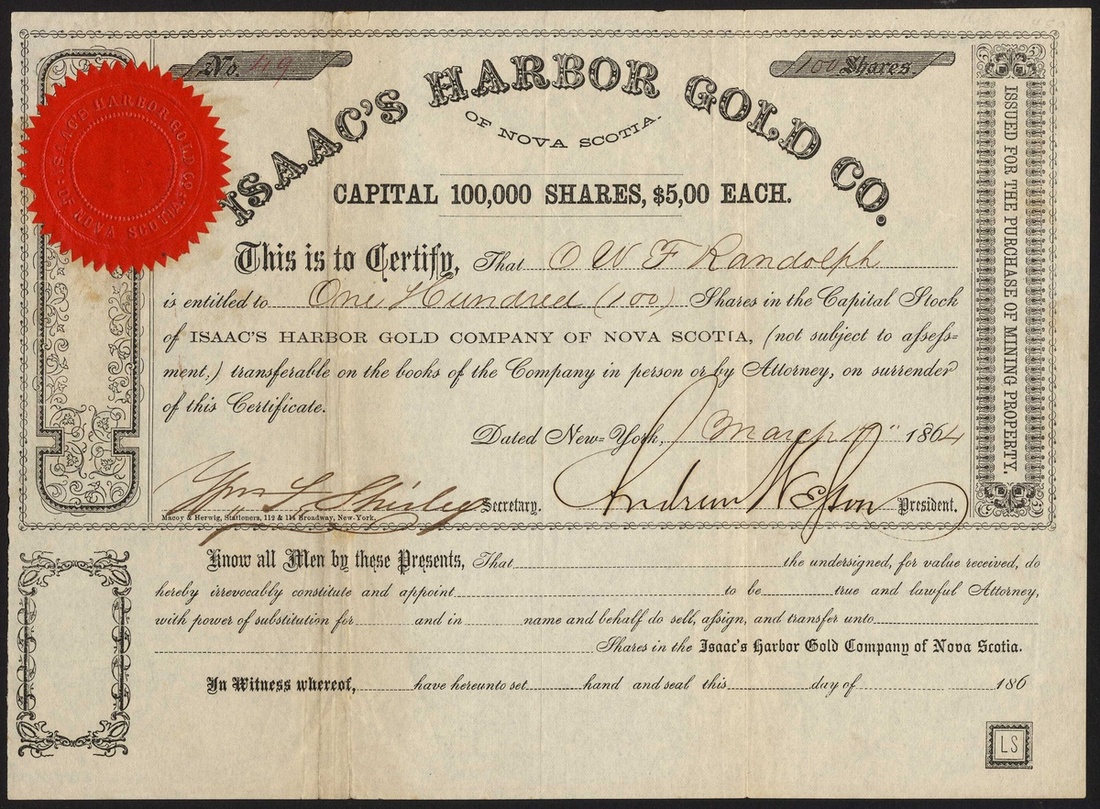 No. 149
100 Shares.
ISAAC'S HARBOR GOLD CO.
OF NOVA SCOTIA.
CAPITAL 100,000 SHARES, $5,00 EACH.
ISAAC'S HARBOR GOLD CO.
OF NOVA SCOTIA
ISSUED FOR THE PURCHASE OF MINING PROPERTY.
This is to Certify, That O W F Randolph
is entitled to One Hundred (100) Shares in the Capital Stock
of ISAAC'S HARBOR GOLD COMPANY OF NOVA SCOTIA, (not subject to assess-
ment.) transferable on the books of the Company in person or by Attorney, on surrender
of this Certificate.
Dated New-York, March 1864
Wm L Shirley Secretary. Andrew President.
Macoy & Herwig, Stationers, 112 & 114 Broadway, New-York.
Know all Men by these Presents, That the undersigned, for value received, do
hereby irrevocably constitute and appoint to be true and lawful Attorney,
with power of substitution for and in name and behalf do sell, assign, and transfer unto
Shares in the Isaac's Harbor Gold Company of Nova Scotia.
In Witness whereof, have hereunto set hand and seal this day of 186
LS